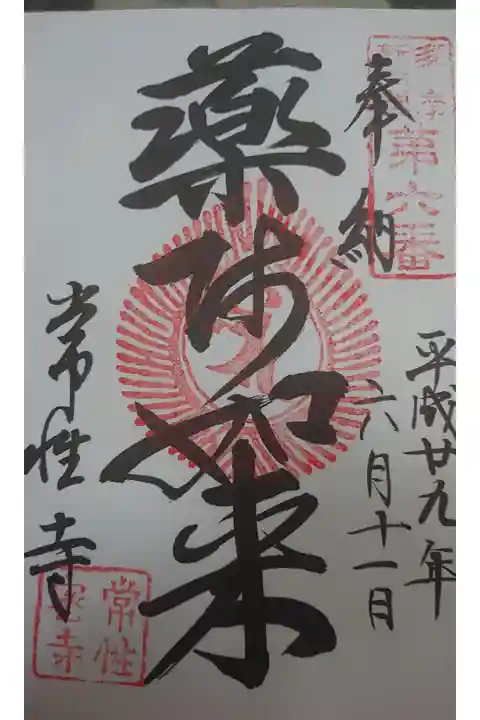 奉納
第六番
平成廿九年
六月十一日
薬师如来
常性寺
常性
密寺